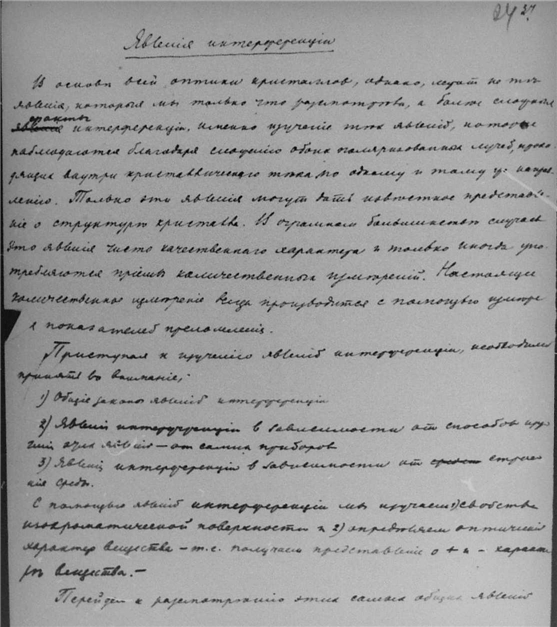 27.
Явленія интерференціи
Въ основѣ всей оптики кристалловъ, однако, лежатъ не тѣ
явленія, которыя мы только что разсмотрѣли, а болѣе сложныя
факты
интерференціи, именно изученіе тѣхъ явленій, которыя
наблюдаются благодаря сложенію обоихъ поляризованныхъ лучей, прохо
дящихъ внутри кристаллическаго тѣла, по одному и тому же напра
вленію. Только эти явленія могутъ дать извѣстное представле
ніе о структурѣ кристалла. Въ огромномъ большинствѣ случаевъ
это явленія чисто качественнаго характера и только иногда упо
требляются пріемы количественныхъ измѣреній. Настоящее
количественное измѣреніе производится съ помощью измѣре
я показателей преломленія.
Приступая къ изученію явленій интерференціи, необходимо
принять во вниманіе:
1) Общіе законы явленій интерференціи
2) Явленія интерференціи въ зависимости отъ способовъ изу
ченія этихъ явленій — отъ самихъ приборовъ
3) Явленія интерференціи въ зависимости отъ строе
нія среды.
Съ помощью явленій интерференціи мы изучаемъ 1) свойства
изохроматической поверхности и 2) опредѣляемъ оптическій
характеръ вещества — т.е. получаемъ представленіе о + и - характе
рѣ вещества. —
Перейдемъ къ разсмотрѣнію этихъ самыхъ общихъ явленій